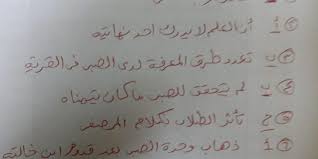 أ ان العلم لا يدرك احد نهايته
ب تعدد طرق المعرفة لدى الصبر في القرية
لم يتحقق للصبي ما كان يتمناه
ج تأثر الطلاب بكلام
أ ذهاب وحدة الصبي بعد قدوم ابن خالته